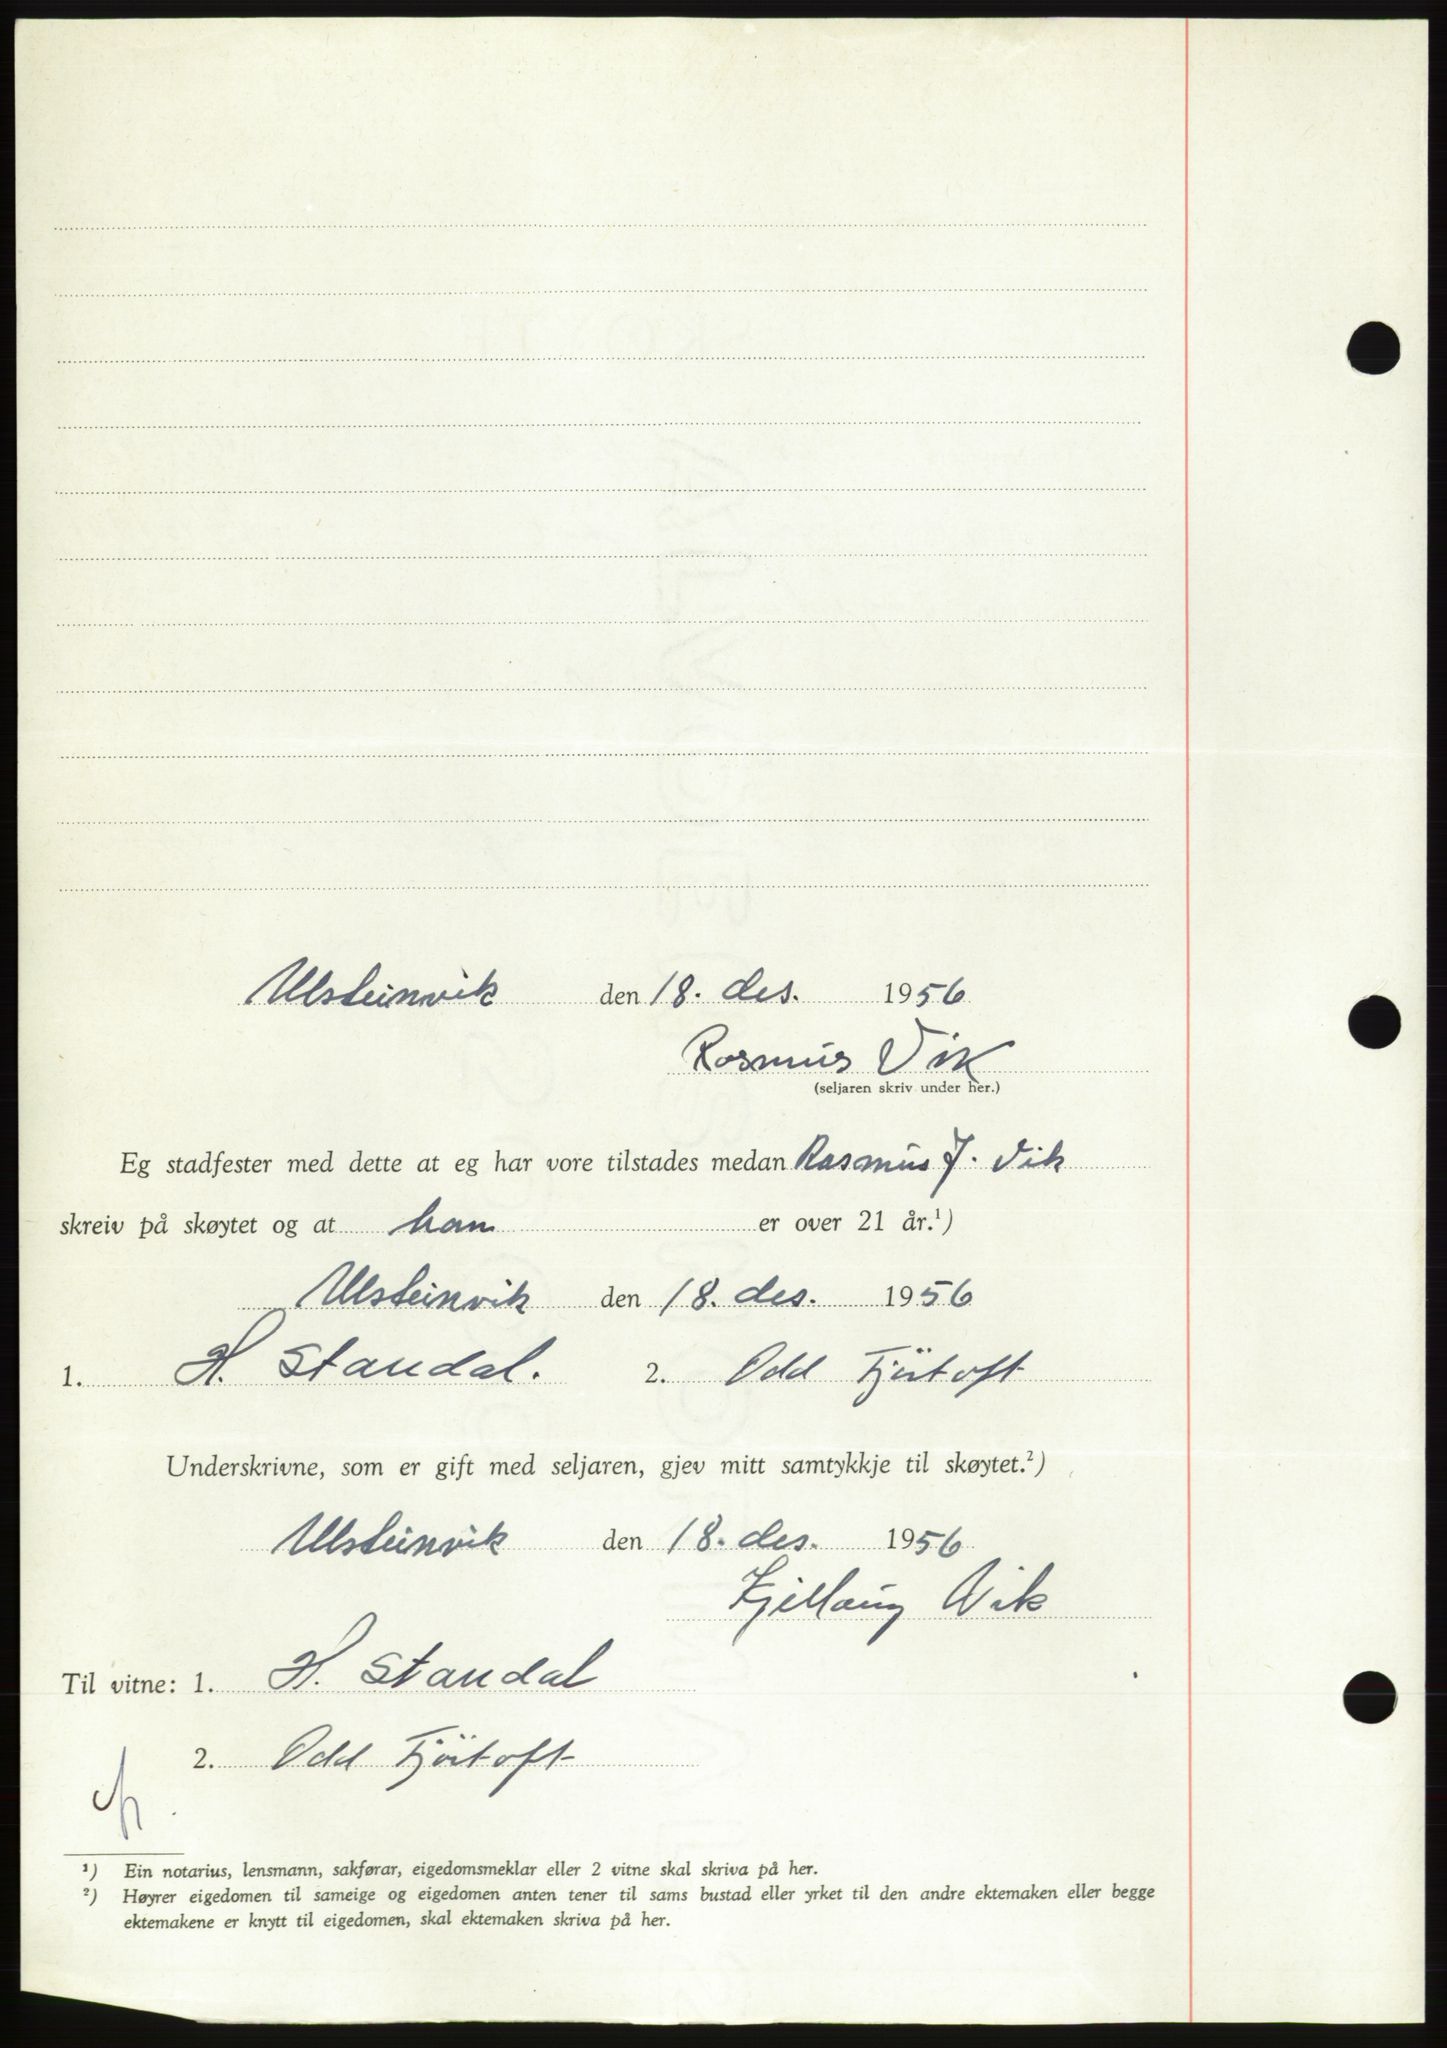 Ulsteinvik den 18. des. 1956
Rasmus Vik
(seljaren skriv under her.)
Eg stadfester med dette at eg har vore tilstades medan Rasmus J. Vik
skreiv på skøytet og at han er over 21 år.¹)
Ulsteinvik den 18. des. 1956
1. H. Standal. 2. Odd Fjörtoft
Underskrivne, som er gift med seljaren, gjev mitt samtykkje til skøytet.²)
Ulsteinvik den 18. des. 1956
Kjellaug Vik
Til vitne: 1. H. Standal
2. Odd Fjörtoft
¹) Ein notarius, lensmann, sakførar, eigedomsmeklar eller 2 vitne skal skriva på her.
²) Høyrer eigedomen til sameige og eigedomen anten tener til sams bustad eller yrket til den andre ektemaken eller begge
ektemakene er knytt til eigedomen, skal ektemaken skriva på her.